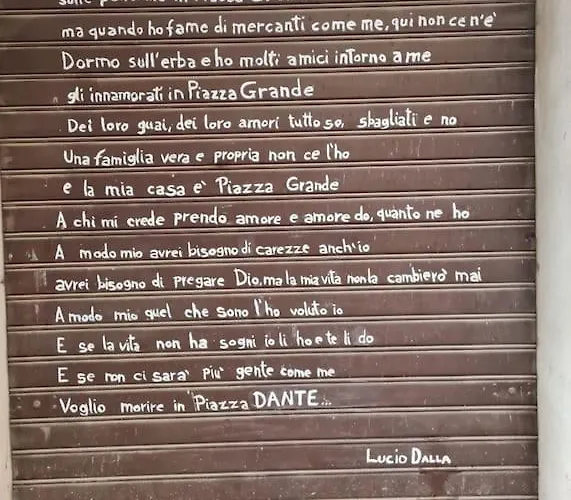 ma quando ho fame di mercanti come me, qui non ce n'è
Dormo sull'erba e ho molti amici intorno a me
gli innamorati in Piazza Grande
Dei loro guai, dei loro amori tutto so, sbagliati e no
Una famiglia vera e propria non ce l'ho
e la mia casa è Piazza Grande
A chi mi crede prendo amore e amore do, quanto ne ho
A modo mio avrei bisogno di carezze anch'io
avrei bisogno di pregare Dio, ma la mia vita non la cambierò mai
A modo mio quel che sono l'ho voluto io
E se la vita non ha sogni io li ho e te li do
E se non ci sara' piu' gente come me
Voglio morire in Piazza DANTE...
LUCIO DALLA